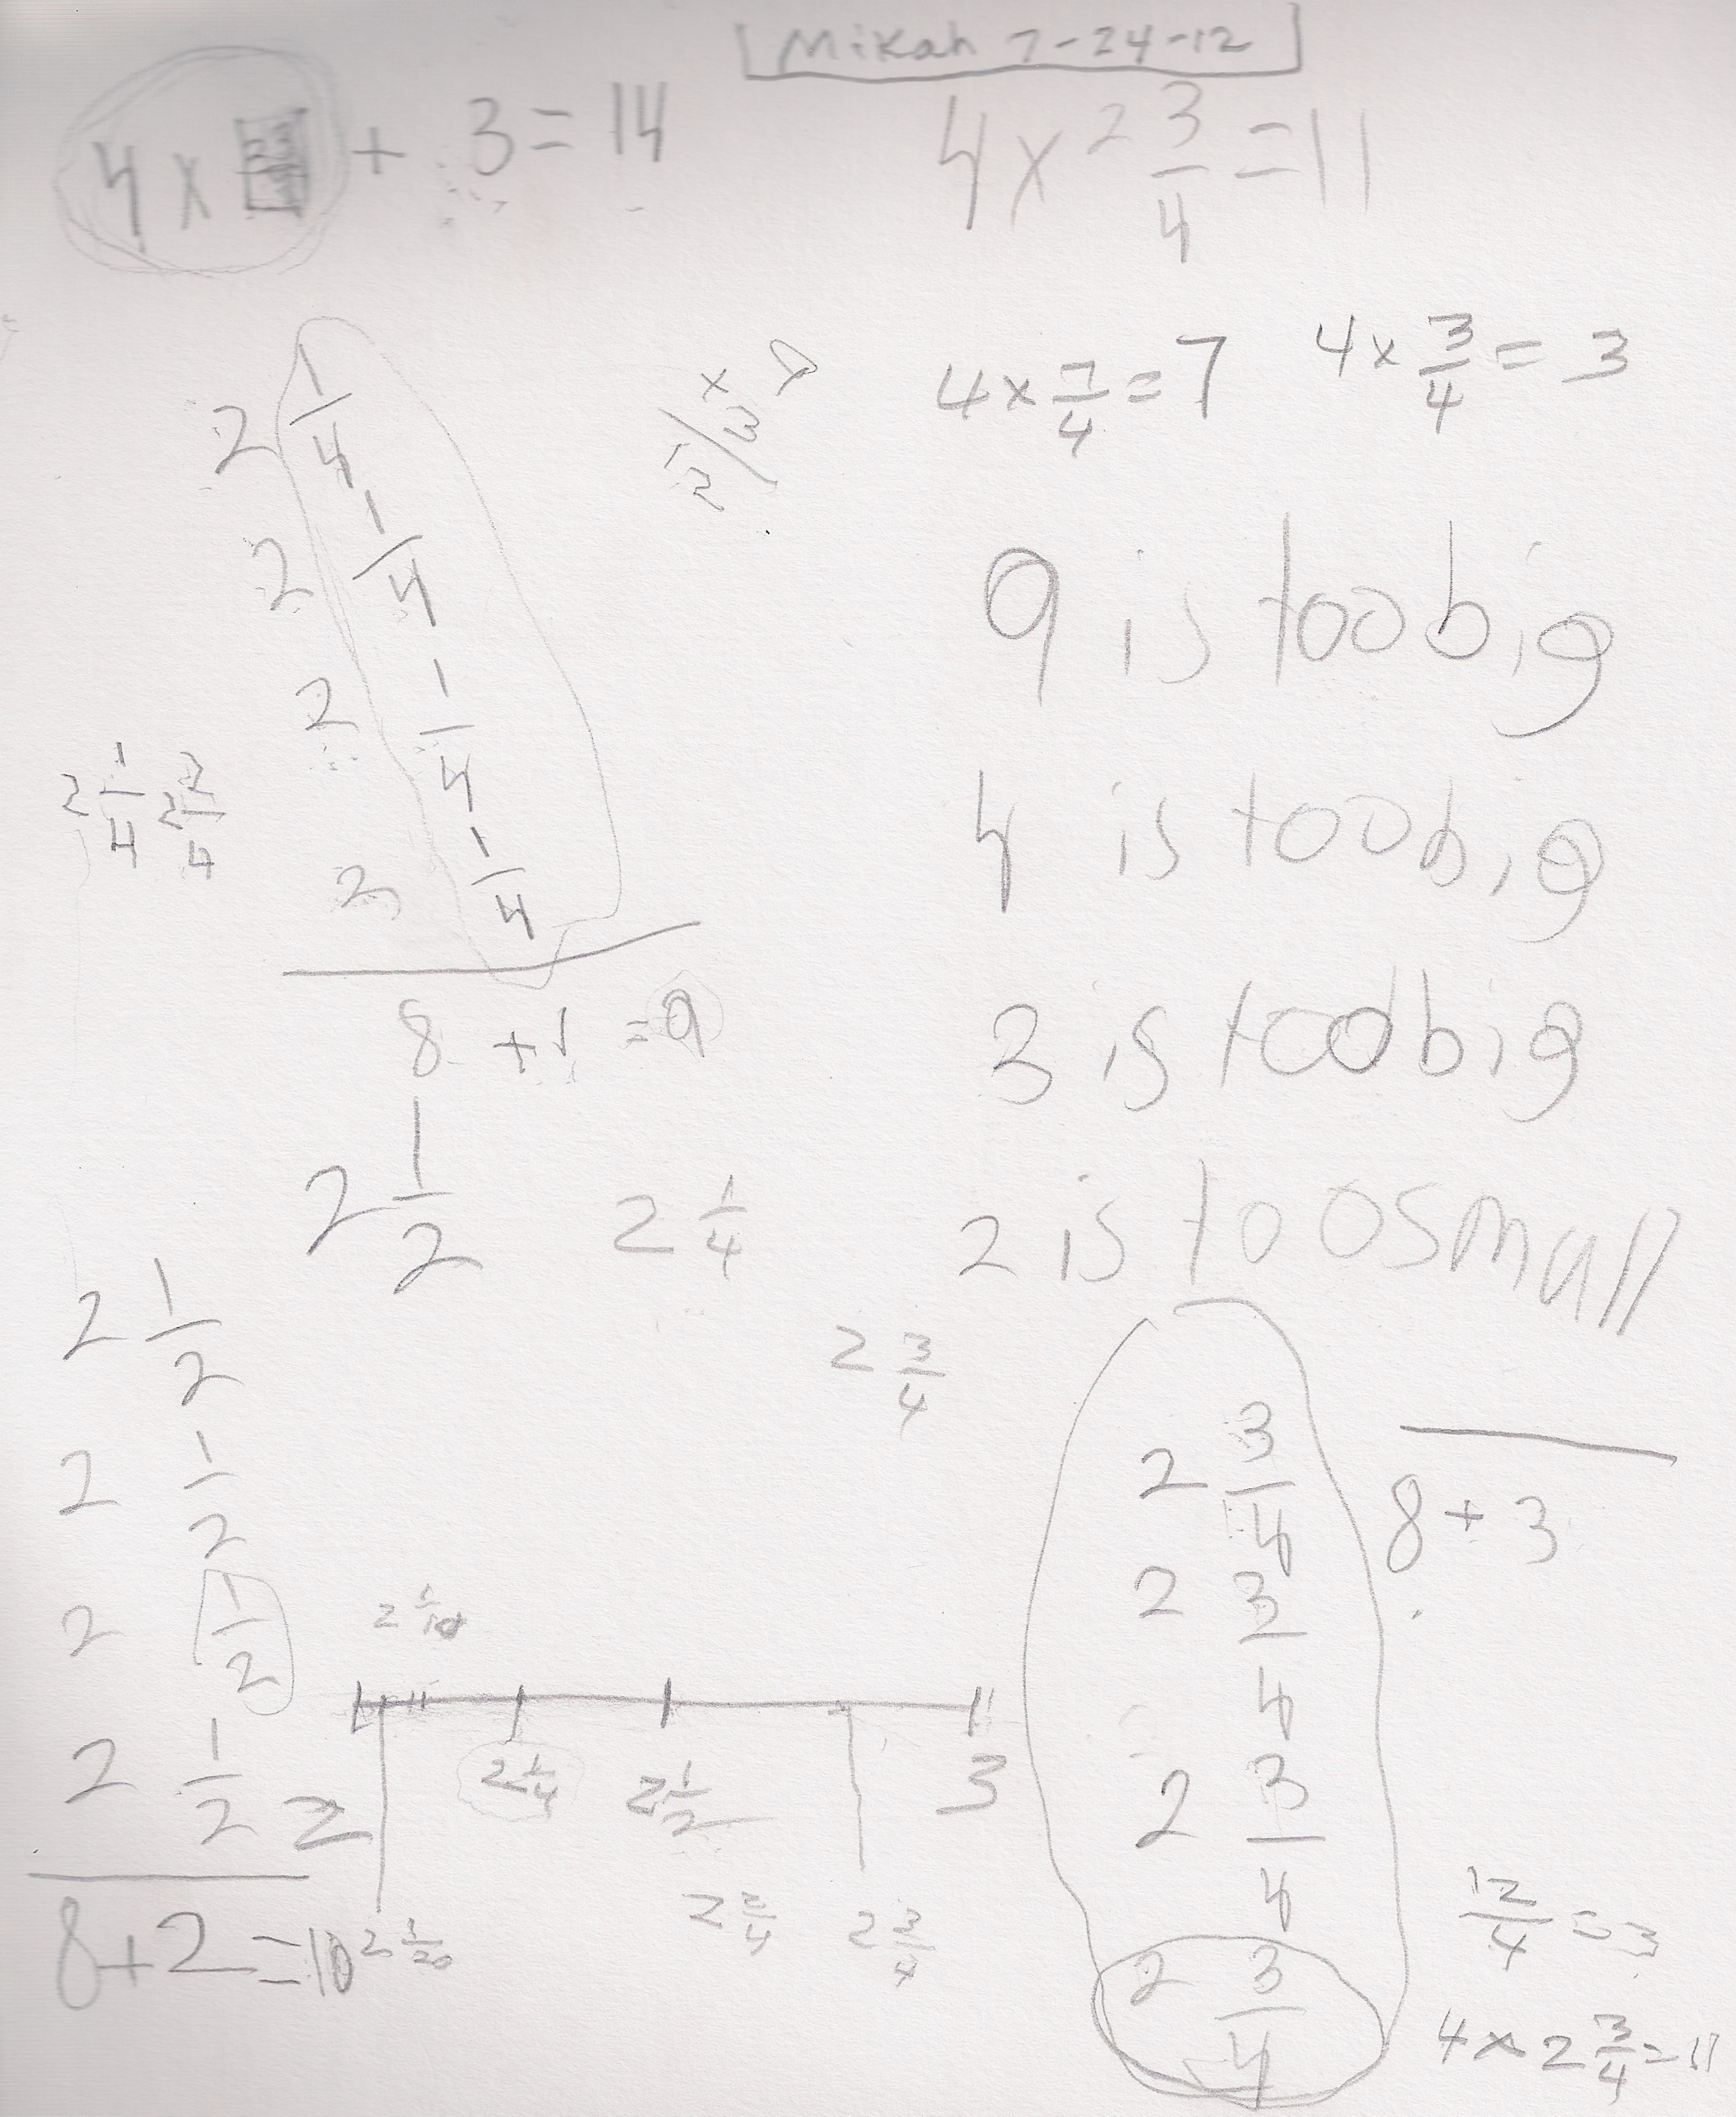 Mikah 7-24-12
4 x + 3 = 14
4 x 2 3/4 = 11
4 x 7/4 = 7
4 x 3/4 = 3
2 1/4
2 1/4
2 1/4
2 1/4
8 + 1 = 9
2 1/4
9 is too big
4 is too big
3 is too big
2 is too small
2 1/2
2 1/4
2 3/4
2 1/2
2 1/2
2 1/2
2 1/2
8 + 2 = 10
2
2 1/4
2 1/2
3
2 1/20
2 2/4
2 3/4
2 3/4
2 3/4
2 3/4
2 3/4
8 + 3
12/4 = 3
4 x 2 3/4 = 11